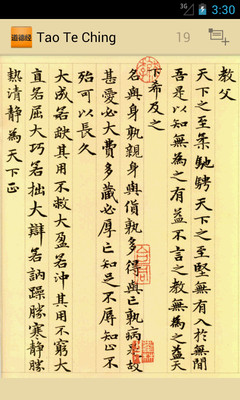 3G 3:30
道德经 Tao Te Ching 19
教父
天下之至柔馳騁天下之至堅無有入於無閒
吾是以知無為之有益不言之教無為之益天
下希及之
名與身孰親身與貨孰多得與亡孰病是故
甚愛必大費多藏必厚亡知足不辱知止不
殆可以長久
大成若缺其用不敝大盈若沖其用不窮大
直若屈大巧若拙大辯若訥躁勝寒靜勝
熱清靜為天下正